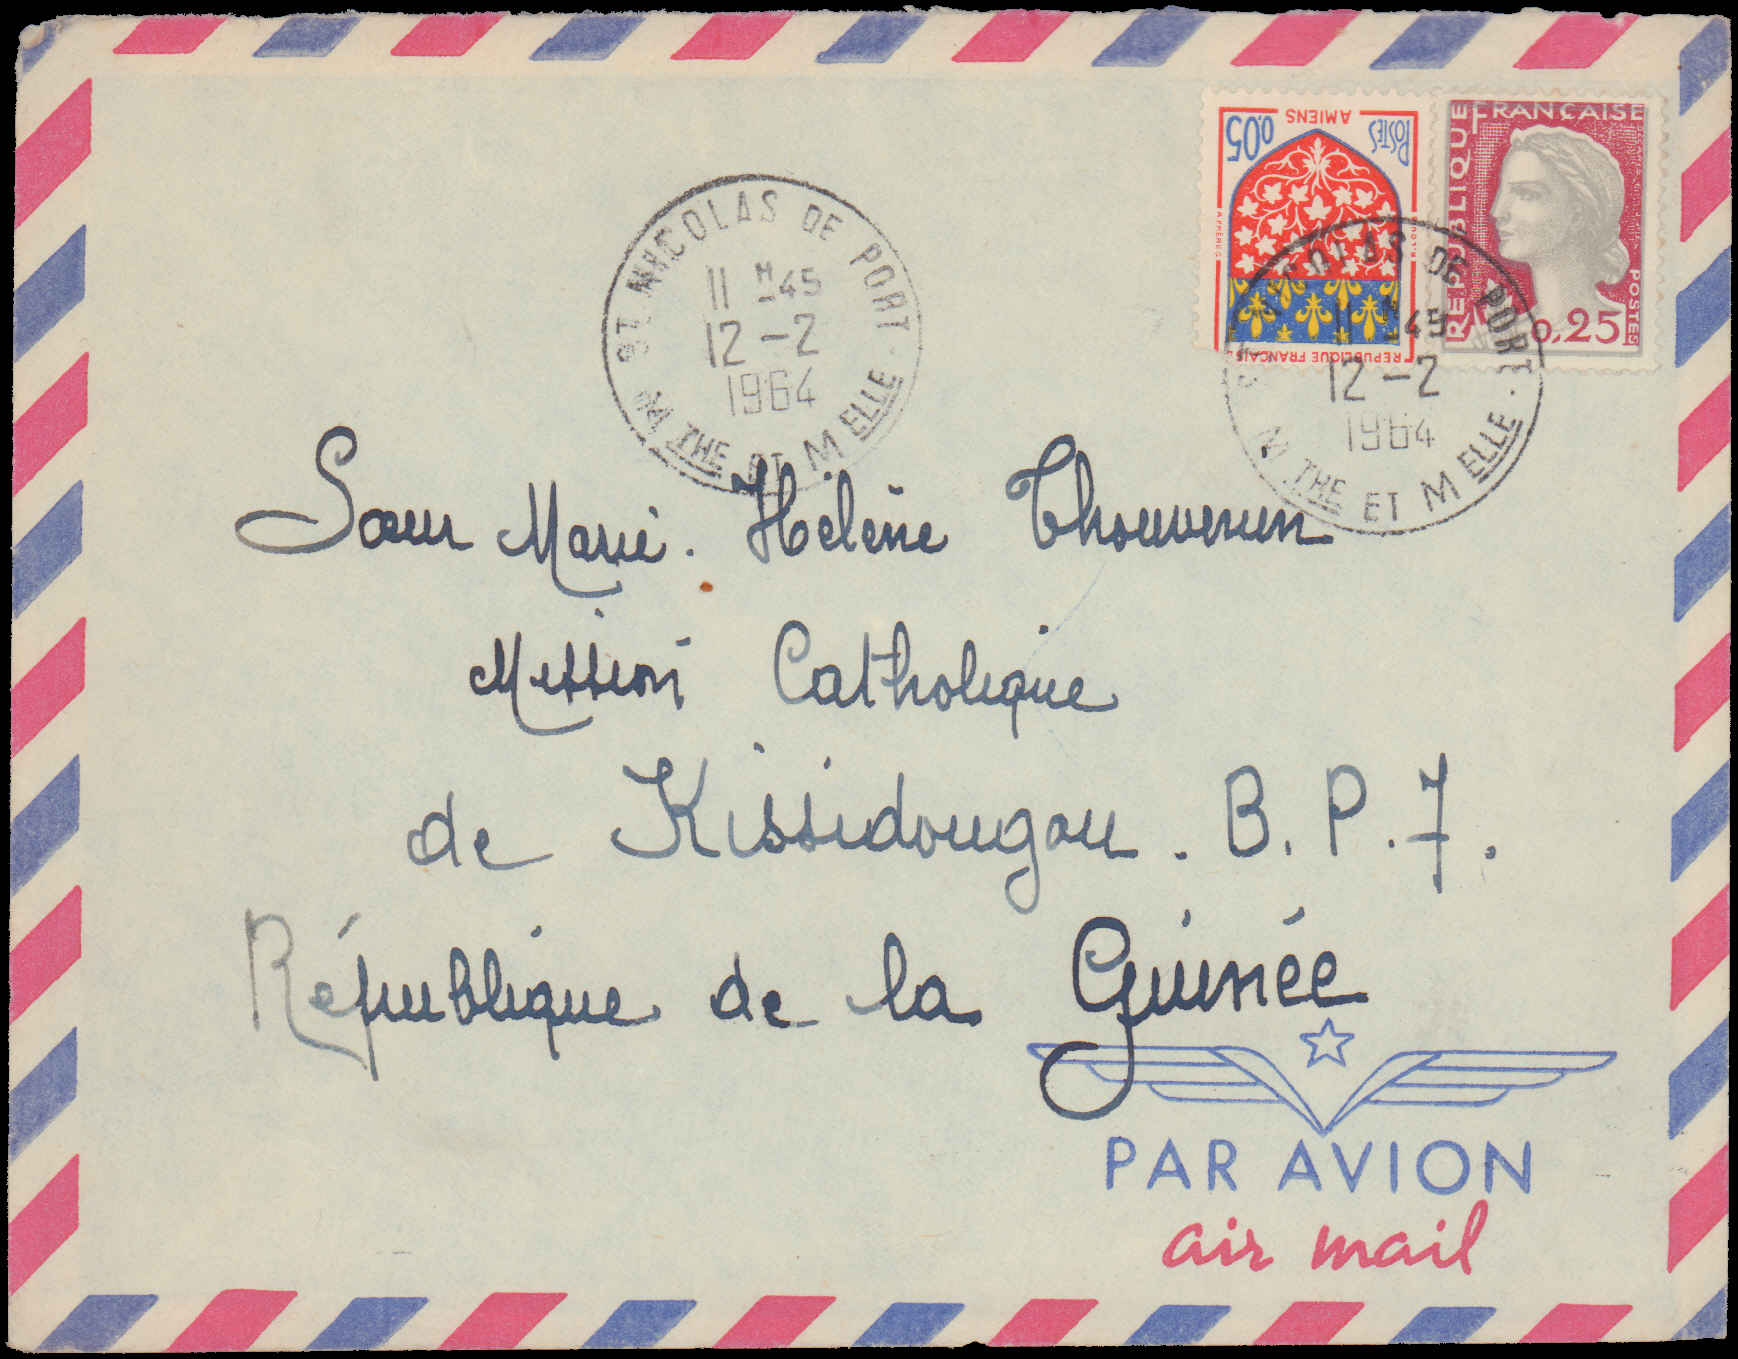 AMIENS
POSTES
0,05
REPUBLIQUE FRANCAISE
REPUBLIQUE FRANÇAISE
POSTES
0,25
ST NICOLAS DE PORT
11 H 45
12-2
1964
MTHE ET MELLE
11 H 45
12-2
1964
MTHE ET MELLE
Sœur Marie. Hélène Thouvenin
Mission Catholique
de Kissidougou. B.P.7.
République de la Guinée
PAR AVION
air mail